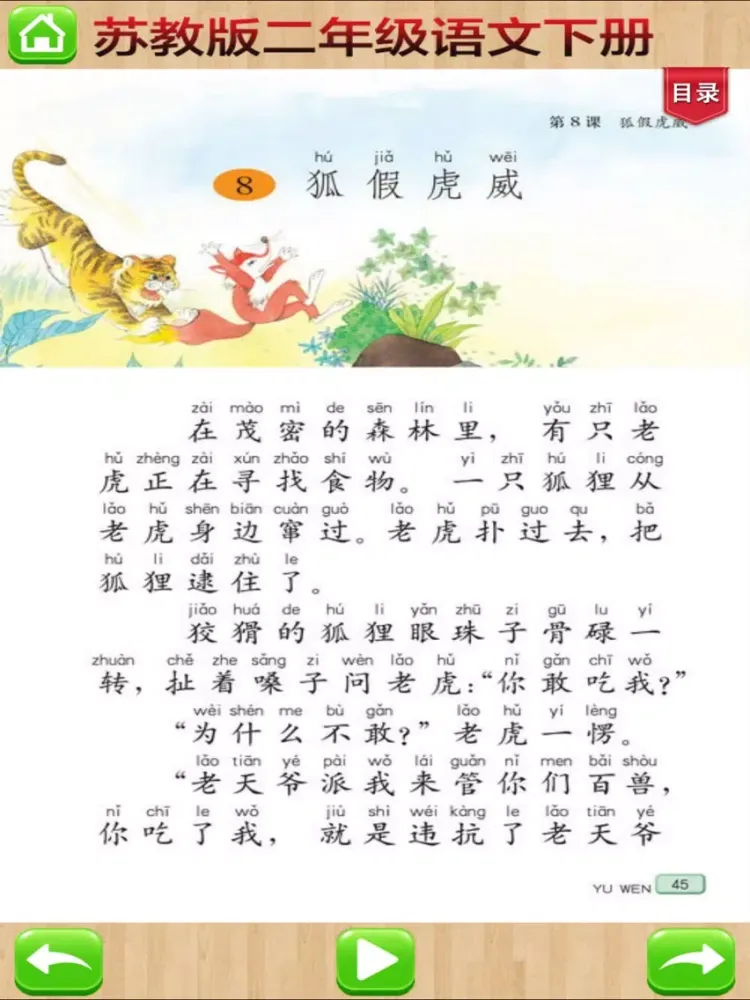 苏教版二年级语文下册
目录
第8课 狐假虎威
hú jiǎ hǔ wēi
8 狐假虎威
zài mào mì de sēn lín li yǒu zhī lǎo
在茂密的森林里，有只老
hǔ zhèng zài xún zhǎo shí wù yì zhī hú li cóng
虎正在寻找食物。一只狐狸从
lǎo hǔ shēn biān cuàn guò lǎo hǔ pū guo qu bǎ
老虎身边窜过。老虎扑过去，把
hú li dǎi zhù le
狐狸逮住了。
jiǎo huá de hú li yǎn zhū zi gū lu yí
狡猾的狐狸眼珠子骨碌一
zhuàn chě zhe sǎng zi wèn lǎo hǔ nǐ gǎn chī wǒ
转，扯着嗓子问老虎：“你敢吃我？”
wèi shén me bù gǎn lǎo hǔ yí lèng
“为什么不敢？”老虎一愣。
lǎo tiān yé pài wǒ lái guǎn nǐ men bǎi shòu
“老天爷派我来管你们百兽，
nǐ chī le wǒ jiù shì wéi kàng le lǎo tiān yé
你吃了我，就是违抗了老天爷
YU WEN 45